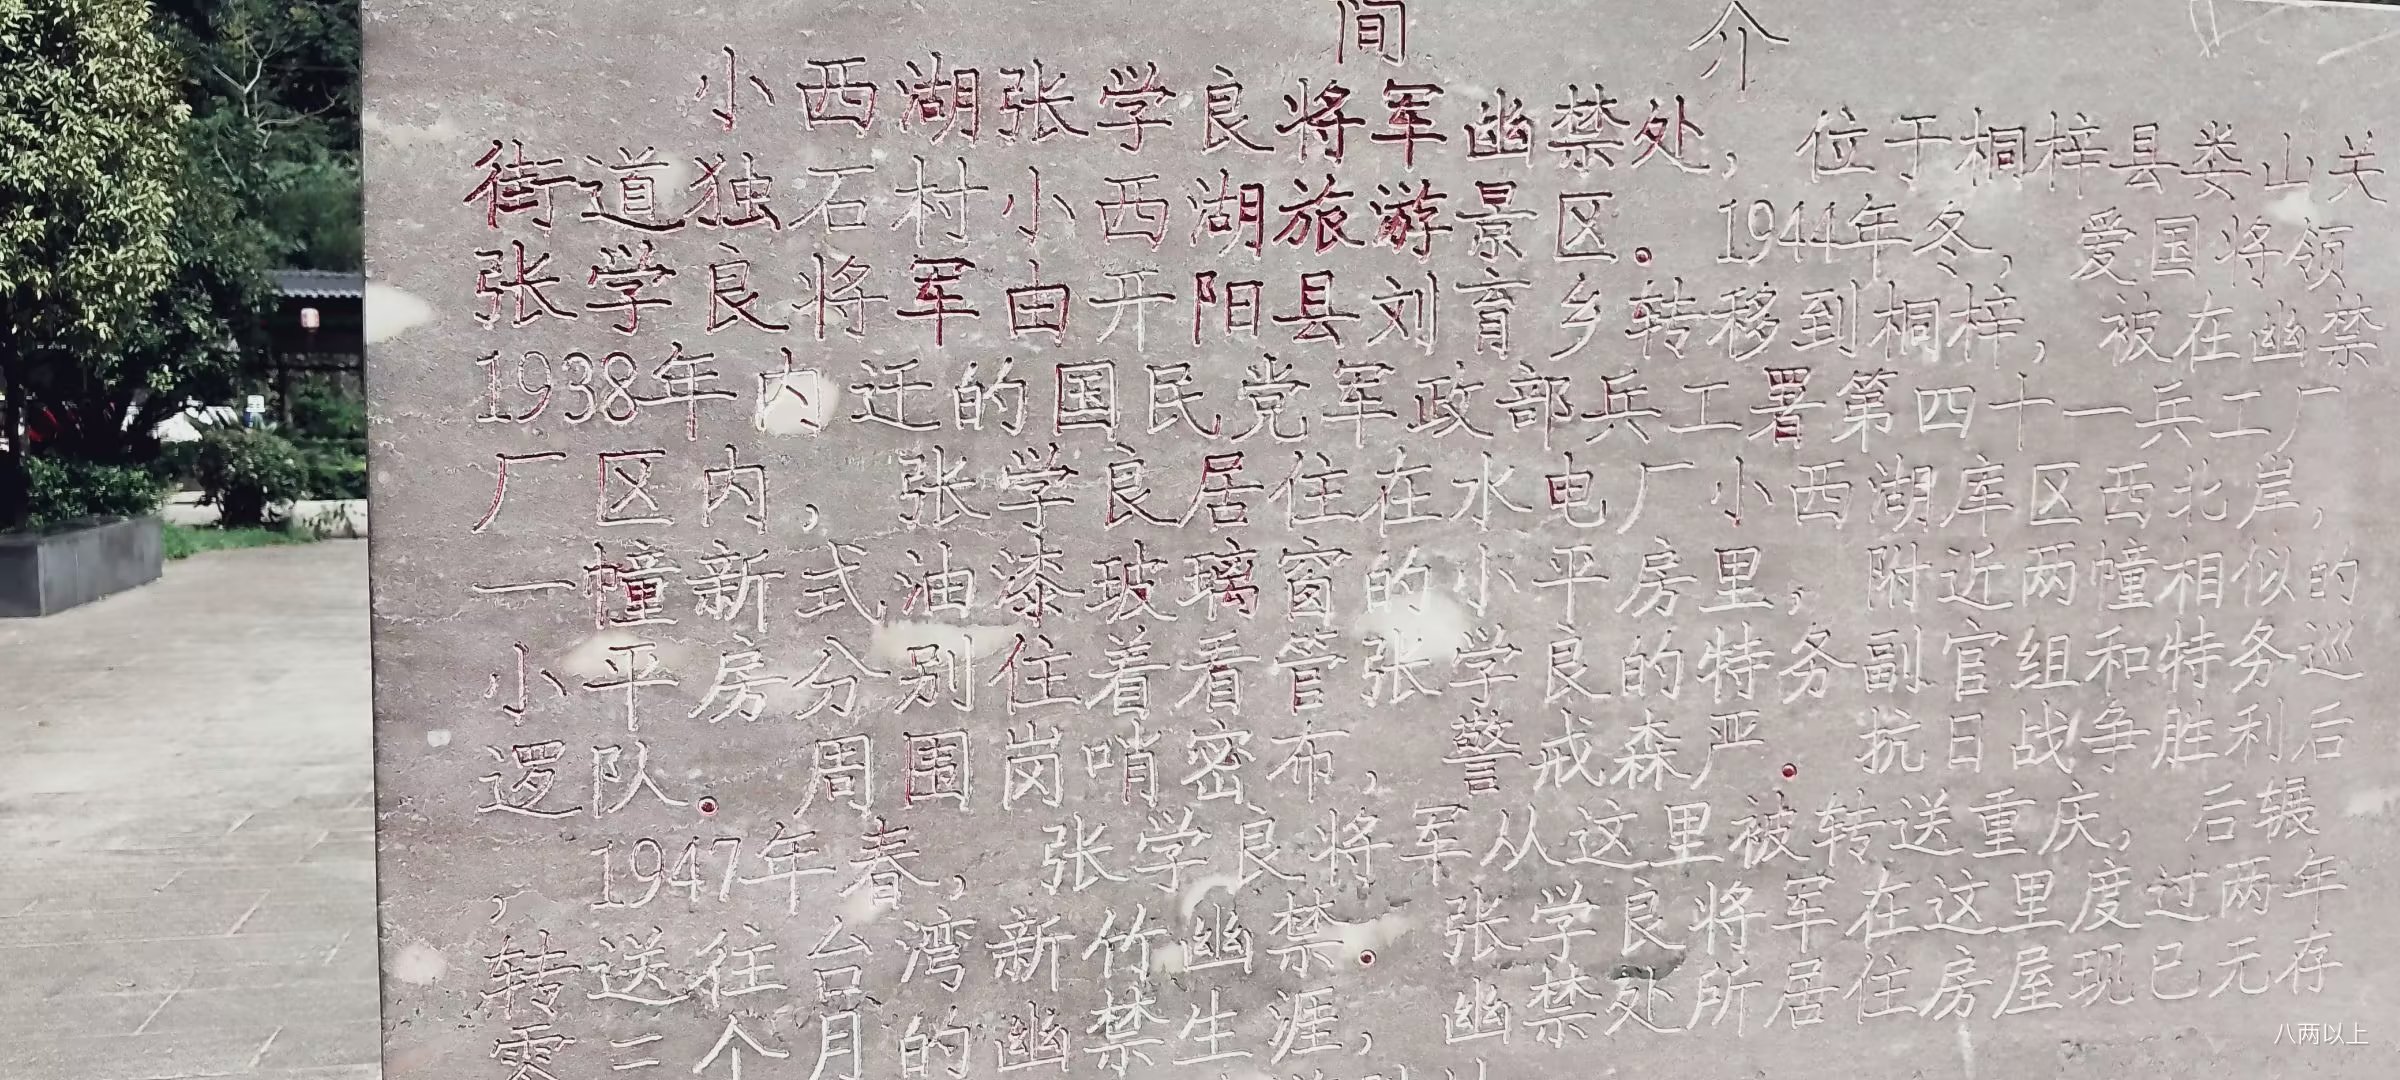 间 介
小西湖张学良将军幽禁处，位于桐梓县娄山关
街道独石村小西湖旅游景区。1944年冬，爱国将领
张学良将军由开阳县刘育乡转移到桐梓，被在幽禁
1938年内迁的国民党军政部兵工署第四十一兵工厂
厂区内，张学良居住在水电厂小西湖库区西北岸，
一幢新式油漆玻璃窗的小平房里，附近两幢相似的
小平房分别住着看管张学良的特务副官组和特务巡
逻队。周围岗哨密布，警戒森严。抗日战争胜利后
，1947年春，张学良将军从这里被转送重庆，后辗
转送往台湾新竹幽禁。张学良将军在这里度过两年
零三个月的幽禁生涯，幽禁处所居住房屋现已无存
八两以上